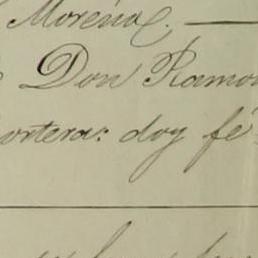 Morena.
Don Ramo
ortera: doy fé